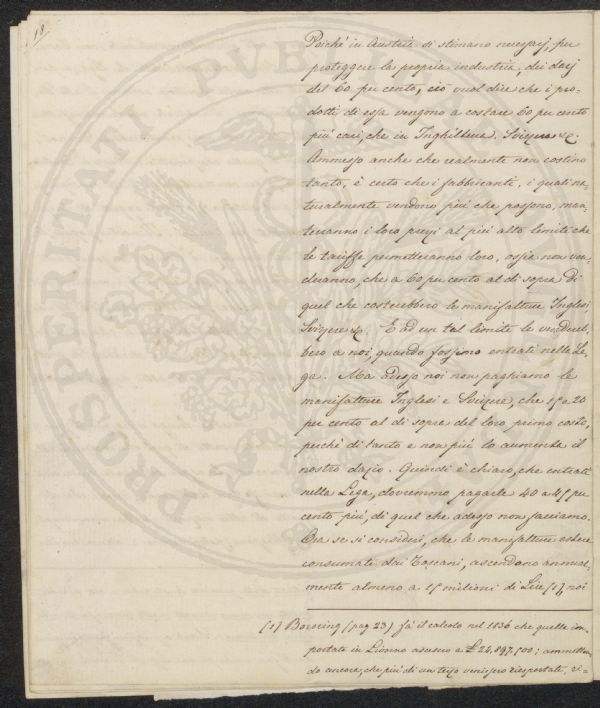 18
Poichè in Austria si stimano necessarj, per
proteggere la propria industria, dei dazj
del 60 per cento, ciò vuol dire che i pro=
dotti di essa vengono a costare 60 per cento
più cari, che in Inghilterra, Svizzera &c.
Ammesso anche che realmente non costino
tanto, è certo che i fabbricanti, i quali na=
turalmente vendono più che possono, man=
terranno i loro prezzi al più alto limite che
le tariffe permetteranno loro, ossia non ven=
deranno, che a 60 per cento al di sopra di
quel che costerebbero le manifatture Inglesi,
Svizzere &c. E ad un tal limite le vendereb=
bero a noi, quando fossimo entrati nella Le=
ga. Ma adesso noi non paghiamo le
manifatture Inglesi e Svizzere, che 15 a 20
per cento al di sopra del loro primo costo,
perchè di tanto e non più lo aumenta il
nostro dazio. Quindi è chiaro, che entrati
nella Lega, dovremmo pagarle 40 a 45 per
cento più, di quel che adesso non facciamo.
Ora se si consideri, che le manifatture estere
consumate dai Toscani, ascendono annual=
mente almeno a 15 milioni di Lire (1), noi
(1) Bowring (pag 23) fà il calcolo nel 1836 che quelle im=
portate in Livorno ascesero a £ 24,897,500; ammetten=
do ancora, che più di un terzo venissero riesportate, ri=
PROSPERITATI PUBLICAE